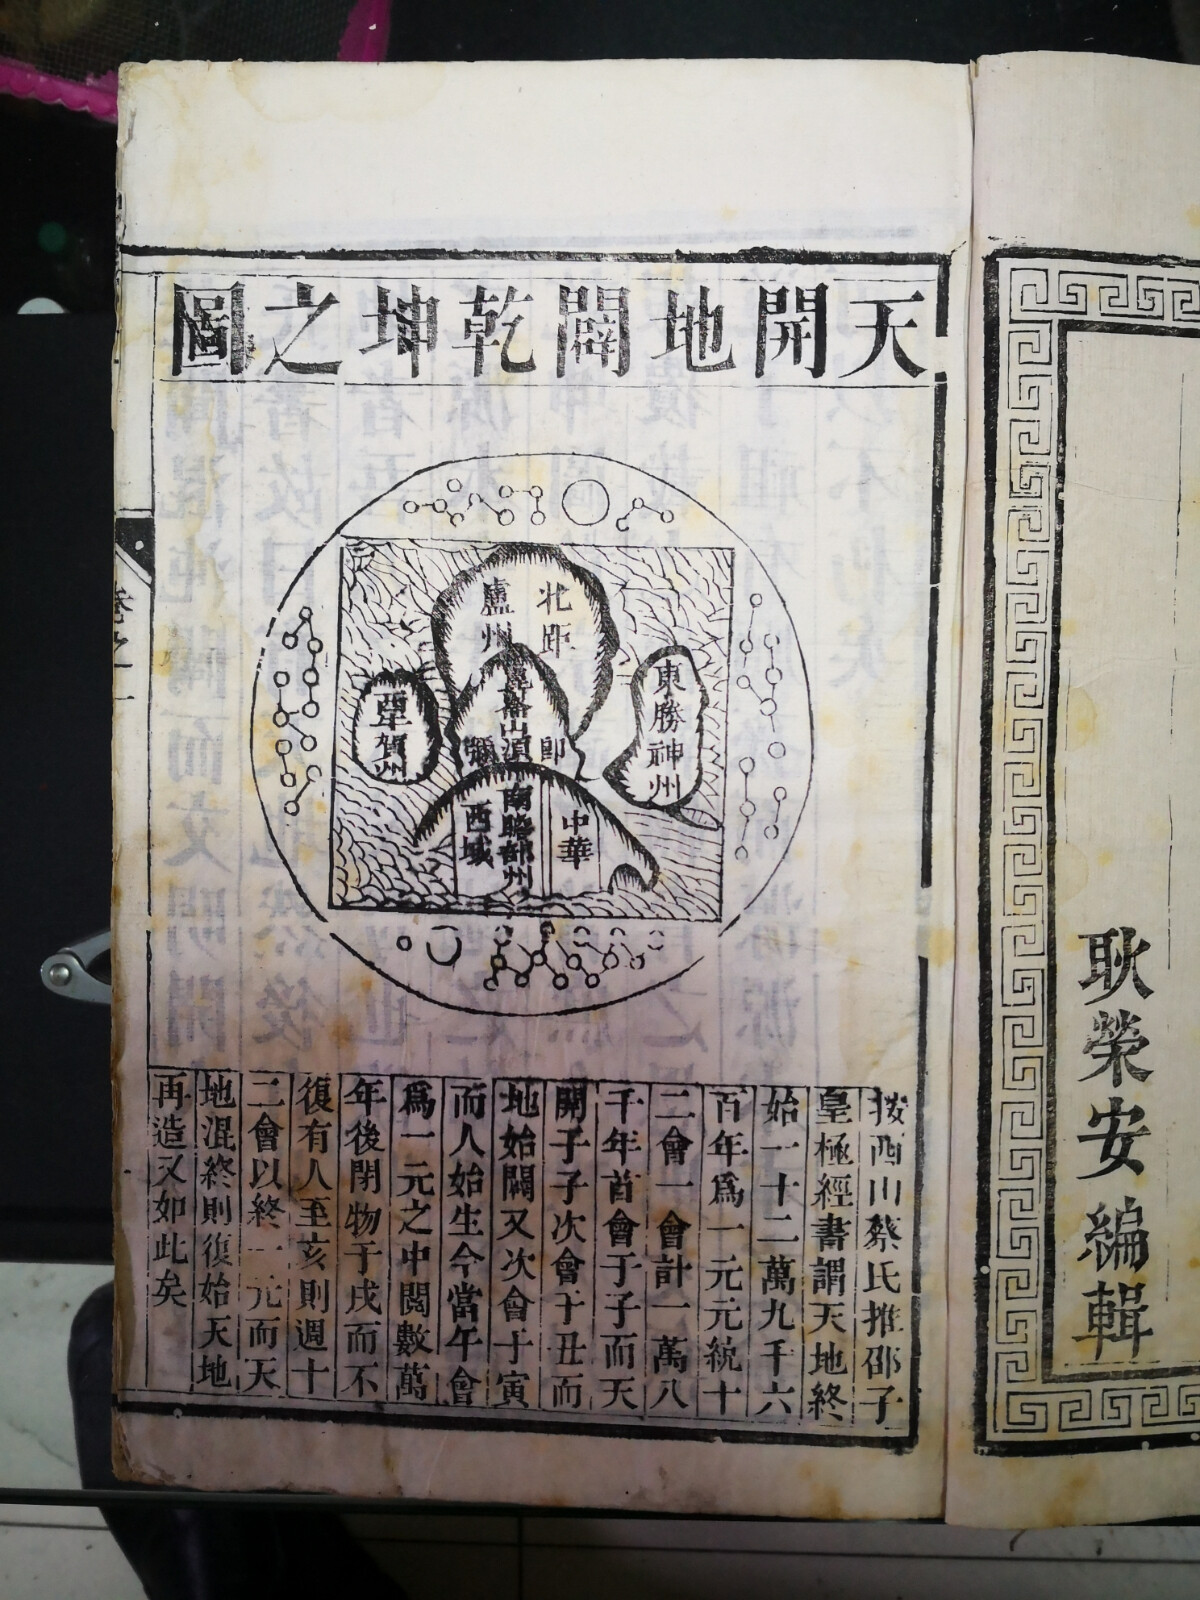 天開地闢乾坤之圖
北距
盧州
東勝神州
覃賀州
崑崙山須
即
彌
中華
南贍部州
西域
按西山蔡氏推邵子
皇極經書謂天地終
始一十二萬九千六
百年爲一元元統十
二會一會計一萬八
千年首會于子而天
開于子次會于丑而
地始闢又次會于寅
而人始生今當午會
爲一元之中閱數萬
年後閉物于戌而不
復有人至亥則週十
二會以終一元而天
地混終則復始天地
再造又如此矣
卷之一
耿榮安編輯